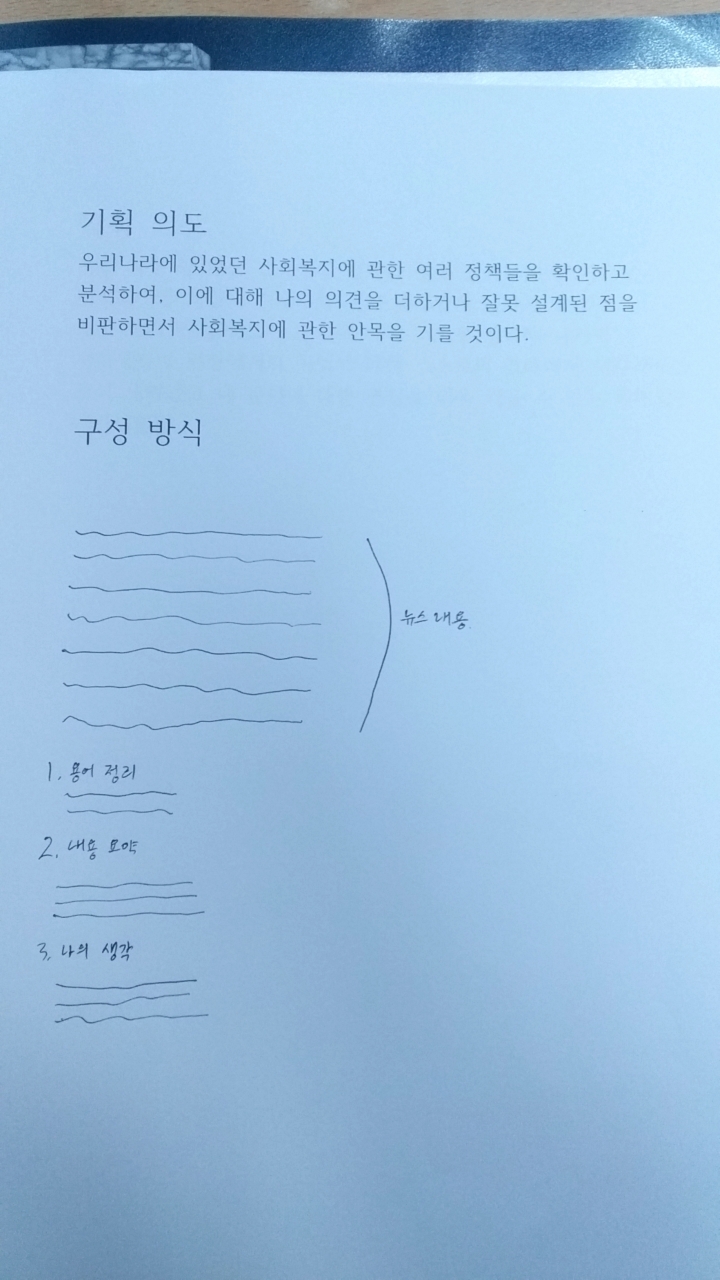 기획 의도
우리나라에 있었던 사회복지에 관한 여러 정책들을 확인하고
분석하여, 이에 대해 나의 의견을 더하거나 잘못 설계된 점을
비판하면서 사회복지에 관한 안목을 기를 것이다.
구성 방식
뉴스 내용.
1. 용어 정리
2. 내용 요약
3. 나의 생각